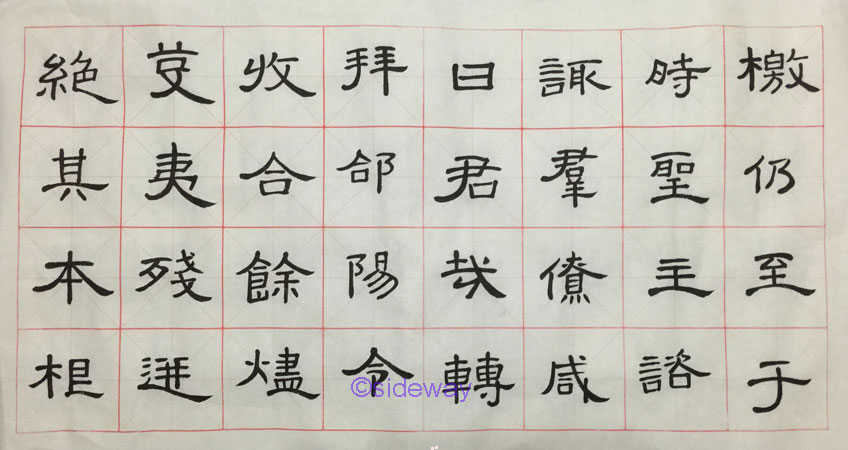 檄仍至于
時聖主諮
諏羣僚咸
曰君哉轉
拜郃陽令
收合餘燼
芟夷殘迸
絶其本根
©sideway